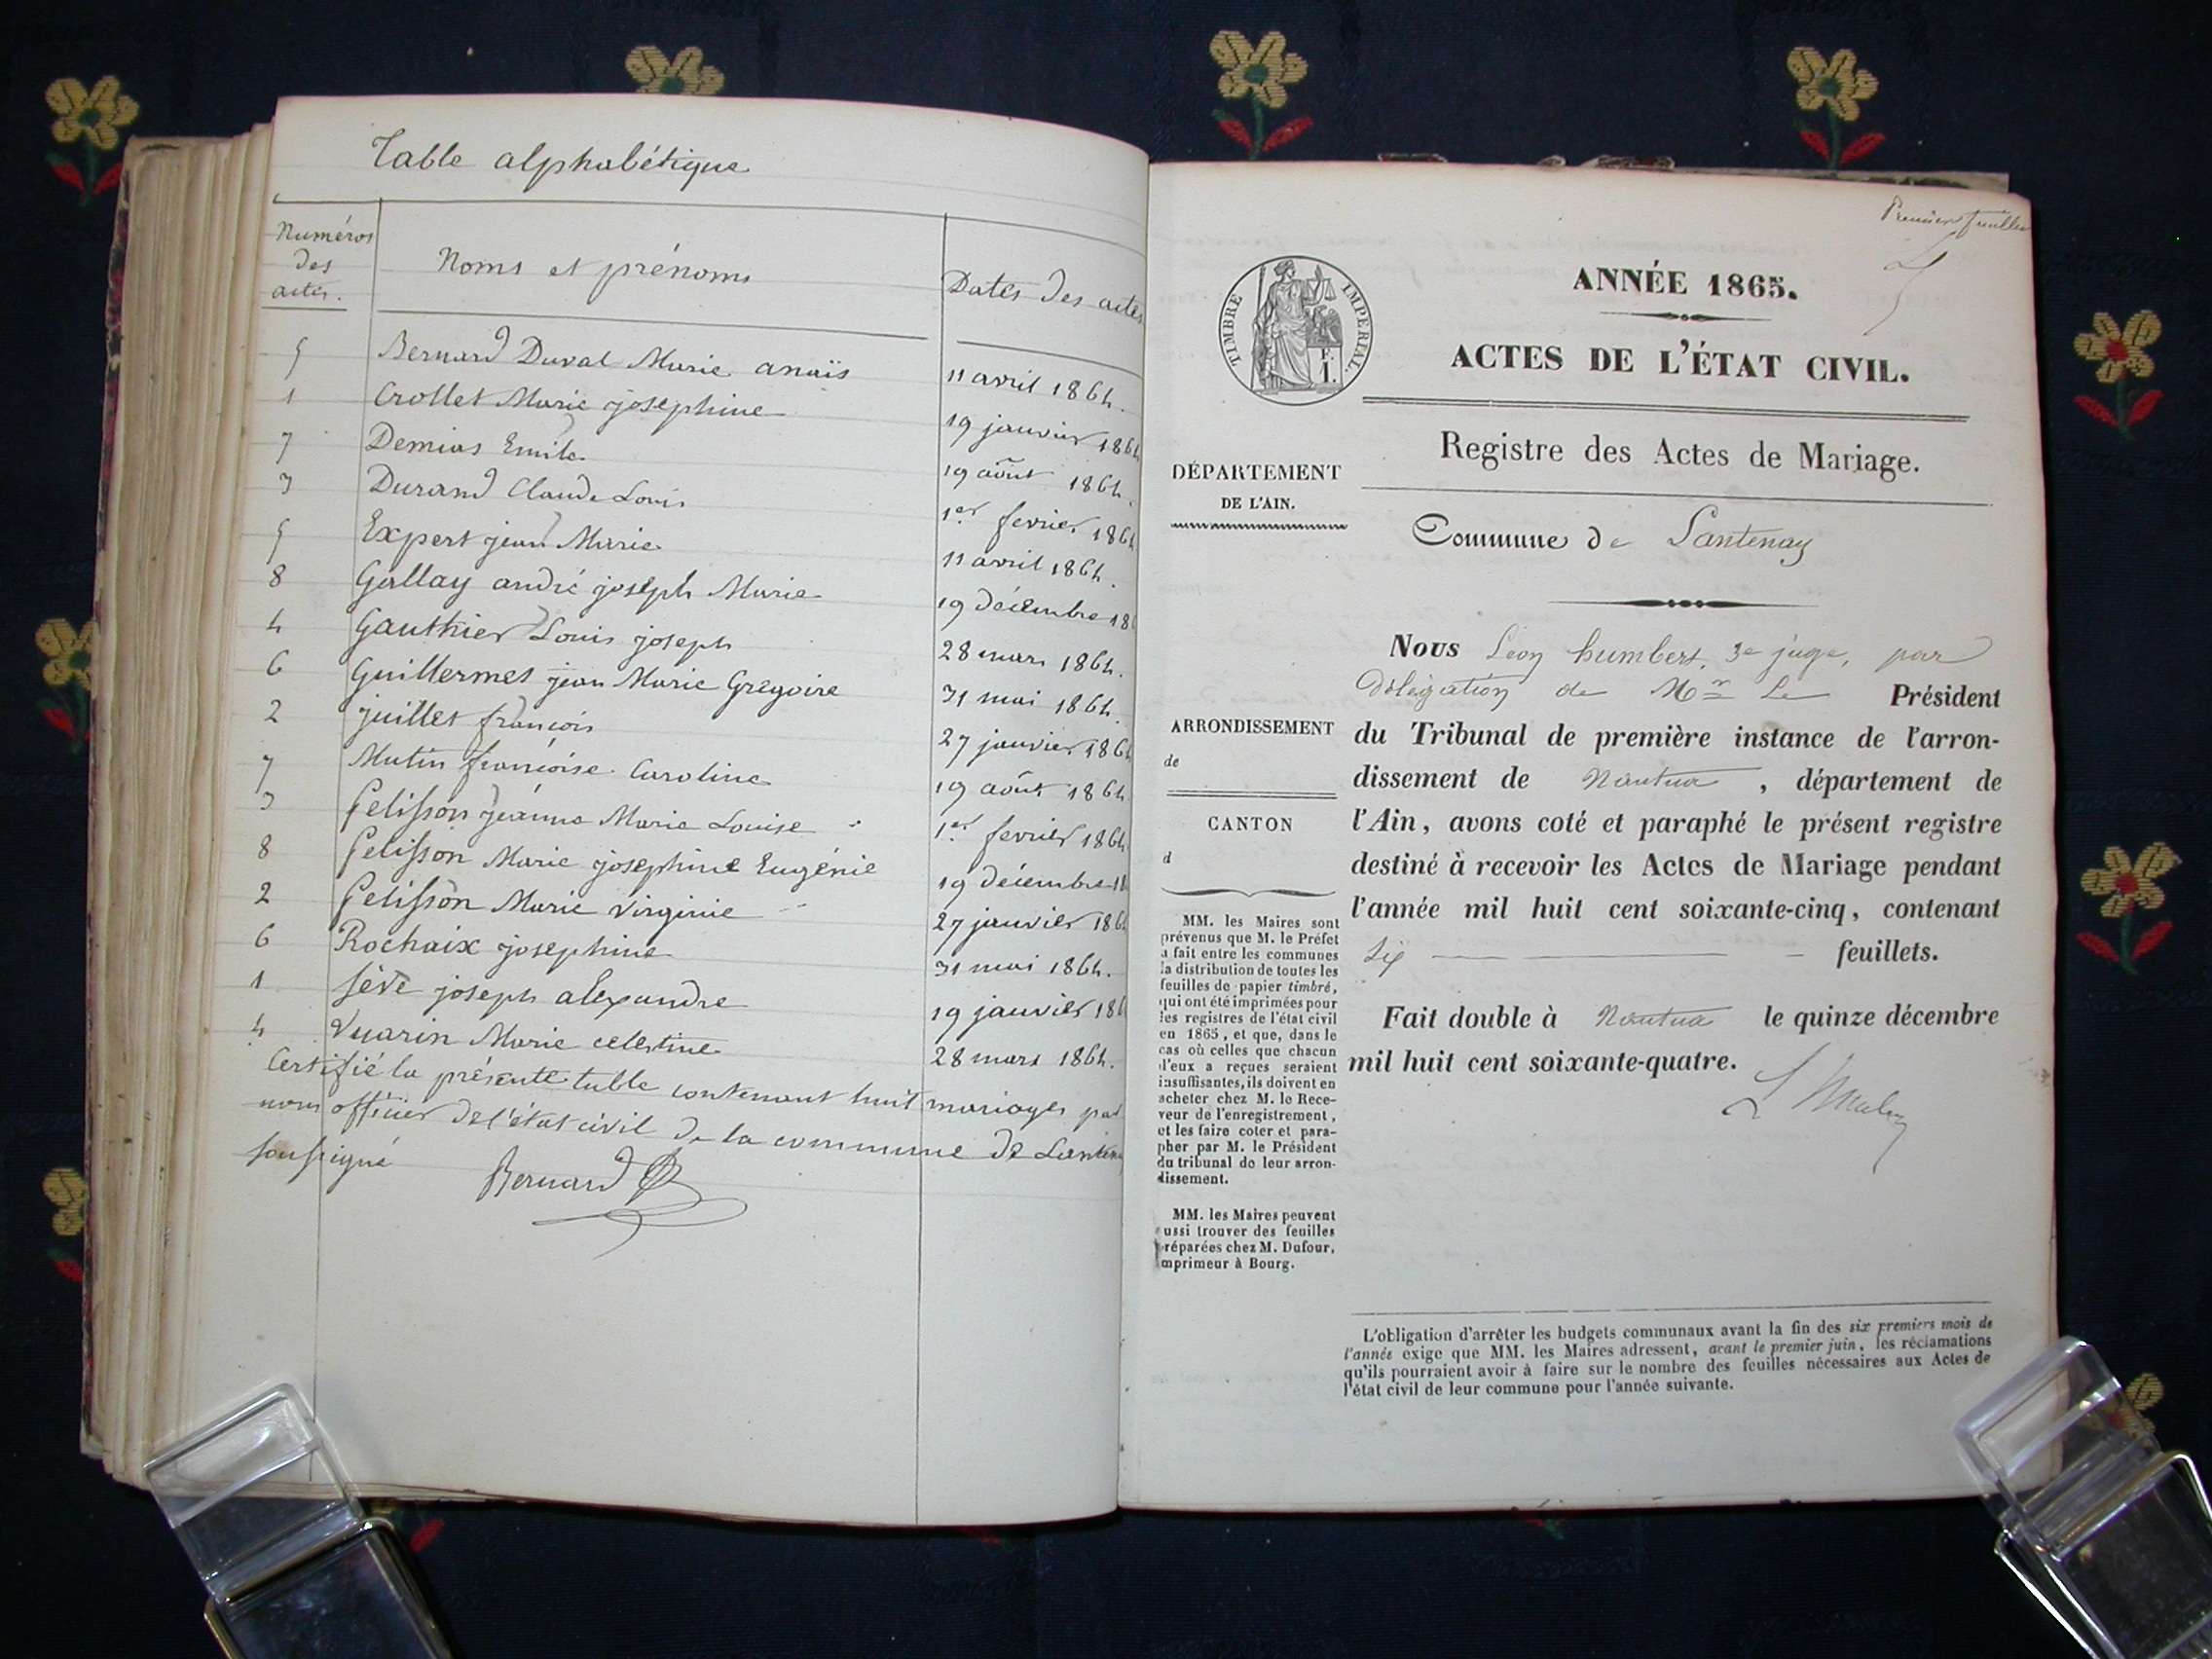 Table alphabétique
Numéros des actes. Noms et prénoms Dates des actes
5 Bernard Duval Marie anaïs 11 avril 1864.
1 Crollet Marie josephine 19 janvier 1864
7 Demias Emile 19 août 1864.
3 Durand Claude Louis 1er fevrier 1864
5 Expert jean Marie 11 avril 1864.
8 Gallay andré joseph Marie 19 décembre 186
4 Gauthier Louis joseph 28 mars 1864.
6 Guillermet jean Marie Grégoire 31 mai 1864.
2 juillet françois 27 janvier 1864
7 Mutin françoise Caroline 19 août 1864
3 Pelisson jeanne Marie Louise 1er fevrier 1864
8 Pelisson Marie josephine Eugénie 19 décembre 18
2 Pelisson Marie virginie 27 janvier 186
6 Rochaix josephine 31 mai 1864.
1 Sève joseph alexandre 19 janvier 186
4 Vuarin Marie celestine 28 mars 1864.
Certifié la présente table contenant huit mariages par
nous officier de l'état civil de la commune de Lanten
soussigné
Bernard
Premier feuillet
TIMBRE IMPÉRIAL.
F.
1.
ANNÉE 1865.
ACTES DE L'ÉTAT CIVIL.
Registre des Actes de Mariage.
Commune de Lantenay
DÉPARTEMENT
DE L'AIN.
ARRONDISSEMENT
de
CANTON
d
MM. les Maires sont
prévenus que M. le Préfet
a fait entre les communes
la distribution de toutes les
feuilles de papier timbré,
qui ont été imprimées pour
les registres de l'état civil
en 1865, et que, dans le
cas où celles que chacun
d'eux a reçues seraient
insuffisantes, ils doivent en
acheter chez M. le Rece-
veur de l'enregistrement,
et les faire coter et para-
pher par M. le Président
du tribunal de leur arron-
dissement.
MM. les Maires peuvent
aussi trouver des feuilles
préparées chez M. Dufour,
imprimeur à Bourg.
Nous Léon humbert, 3e juge, par
délégation de Mr Le Président
du Tribunal de première instance de l'arron-
dissement de Nantua, département de
l'Ain, avons coté et paraphé le présent registre
destiné à recevoir les Actes de Mariage pendant
l'année mil huit cent soixante-cinq, contenant
Six feuillets.
Fait double à Nantua le quinze décembre
mil huit cent soixante-quatre.
L'obligation d'arrêter les budgets communaux avant la fin des six premiers mois de
l'année exige que MM. les Maires adressent, avant le premier juin, les réclamations
qu'ils pourraient avoir à faire sur le nombre des feuilles nécessaires aux Actes de
l'état civil de leur commune pour l'année suivante.